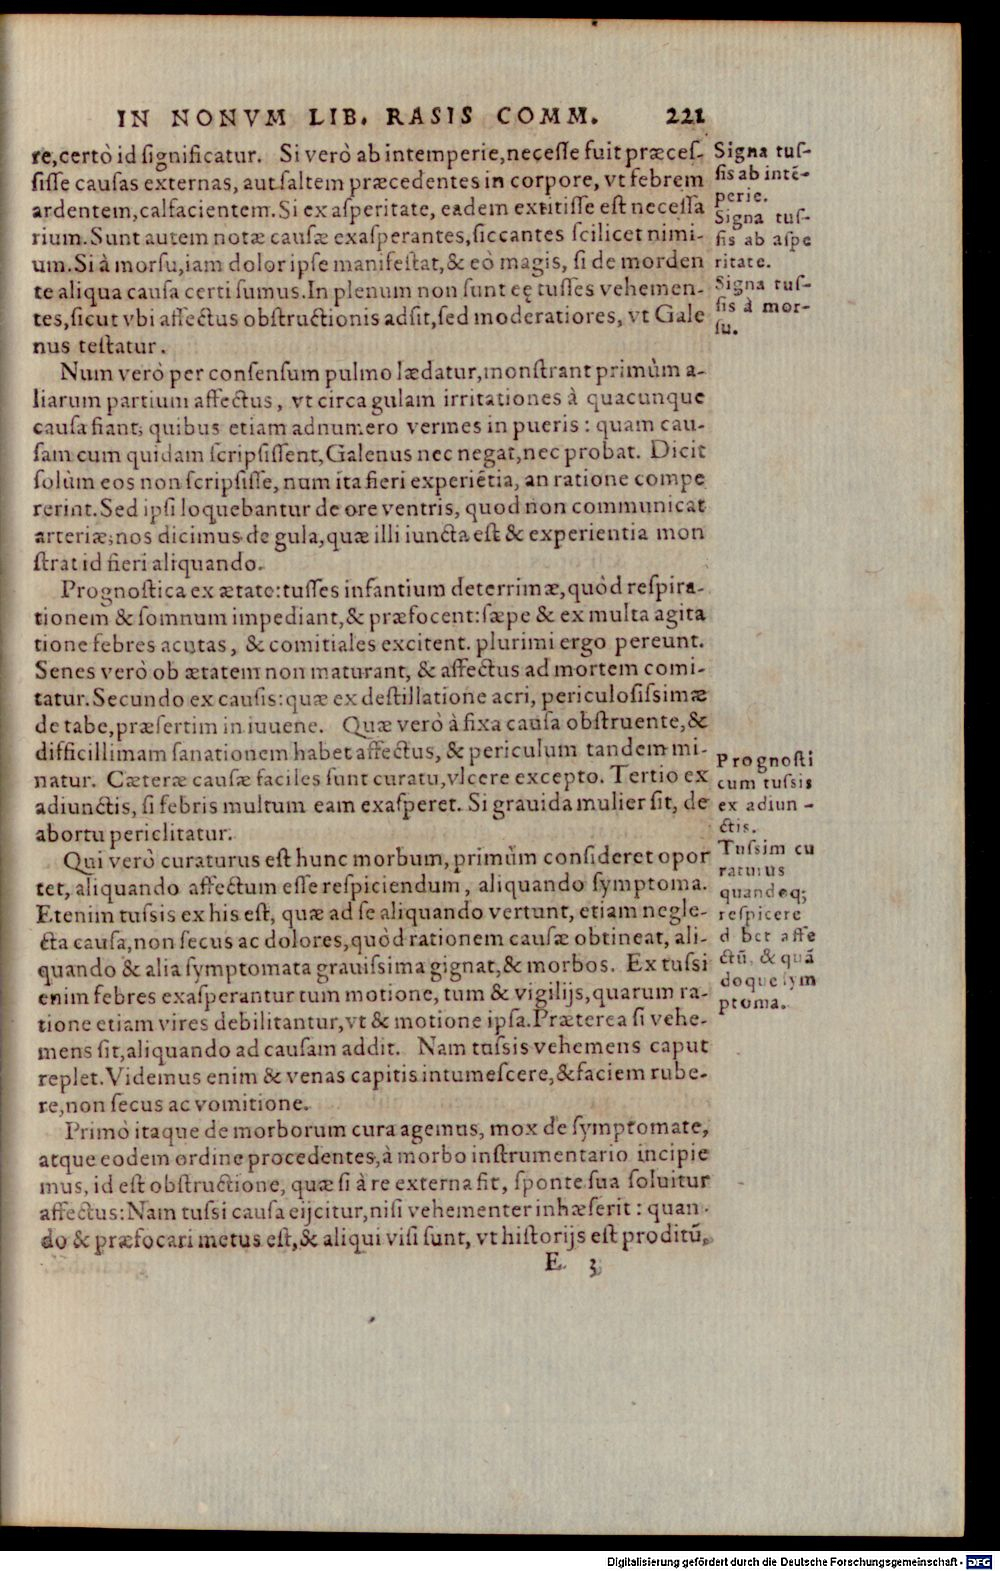 IN NONVM LIB. RASIS COMM. 221
re, certò id significatur. Si verò ab intemperie, necesse fuit præces-
sisse causas externas, aut saltem præcedentes in corpore, vt febrem
ardentem, calfacientem. Si ex asperitate, eadem extitisse est necessa
rium. Sunt autem notæ causæ exasperantes, siccantes scilicet nimi-
um. Si à morsu, iam dolor ipse manifestat, & eò magis, si de morden
te aliqua causa certi sumus. In plenum non sunt eę tusses vehemen-
tes, sicut vbi affectus obstructionis adsit, sed moderatiores, vt Gale
nus testatur.
Signa tus-
sis ab intē-
perie.
Signa tus-
sis ab aspe
ritate.
Signa tus-
sis à mor-
su.
Num verò per consensum pulmo lædatur, monstrant primùm a-
liarum partium affectus, vt circa gulam irritationes à quacunque
causa fiant; quibus etiam adnumero vermes in pueris: quam cau-
sam cum quidam scripsissent, Galenus nec negat, nec probat. Dicit
solùm eos non scripsisse, num ita fieri experiētia, an ratione compe
rerint. Sed ipsi loquebantur de ore ventris, quod non communicat
arteriæ; nos dicimus de gula, quæ illi iuncta est & experientia mon
strat id fieri aliquando.
Prognostica ex ætate: tusses infantium deterrimæ, quòd respira-
tionem & somnum impediant, & præfocent: sæpe & ex multa agita
tione febres acutas, & comitiales excitent. plurimi ergo pereunt.
Senes verò ob ætatem non maturant, & affectus ad mortem comi-
tatur. Secundo ex causis: quæ ex destillatione acri, periculosissimæ
de tabe, præsertim in iuuene. Quæ verò à fixa causa obstruente, &
difficillimam sanationem habet affectus, & periculum tandem mi-
natur. Cæteræ causæ faciles sunt curatu, vlcere excepto. Tertio ex
adiunctis, si febris multum eam exasperet. Si grauida mulier sit, de
abortu periclitatur.
Prognosti
cum tussis
ex adiun-
ctis.
Qui verò curaturus est hunc morbum, primùm consideret opor
tet, aliquando affectum esse respiciendum, aliquando symptoma.
Etenim tussis ex his est, quæ ad se aliquando vertunt, etiam negle-
cta causa, non secus ac dolores, quòd rationem causæ obtineat, ali-
quando & alia symptomata grauissima gignat, & morbos. Ex tussi
enim febres exasperantur tum motione, tum & vigilijs, quarum ra-
tione etiam vires debilitantur, vt & motione ipsa. Præterea si vehe-
mens sit, aliquando ad causam addit. Nam tussis vehemens caput
replet. Videmus enim & venas capitis intumescere, & faciem rube-
re, non secus ac vomitione.
Tussim cu
raturus
quandoq;
respicere
d bet affe
ctū, & quā
doque sym
ptoma.
Primò itaque de morborum cura agemus, mox de symptomate,
atque eodem ordine procedentes, à morbo instrumentario incipie
mus, id est obstructione, quæ si à re externa fit, sponte sua soluitur
affectus: Nam tussi causa eijcitur, nisi vehementer inhæserit: quan-
do & præfocari metus est, & aliqui visi sunt, vt historijs est proditū.
E 3
Digitalisierung gefördert durch die Deutsche Forschungsgemeinschaft - DFG